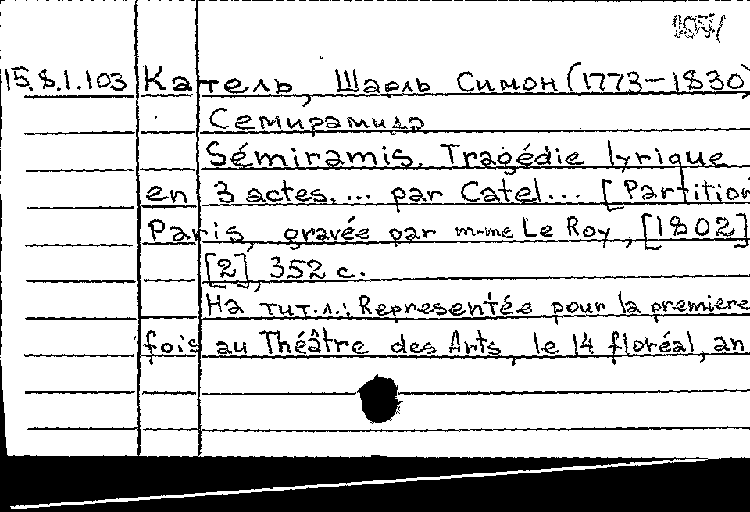 15.8.1.103 Катель, Шарль Симон (1773-1830)
Семирамида
Sémiramis. Tragédie lyrique
en 3 actes.... par Catel... [Partition
Paris, gravée par m-me Le Roy, [1802]
[2], 352 с.
На тит.л.: Representée pour la premiere
fois au Théâtre des Arts, le 14 floréal, an